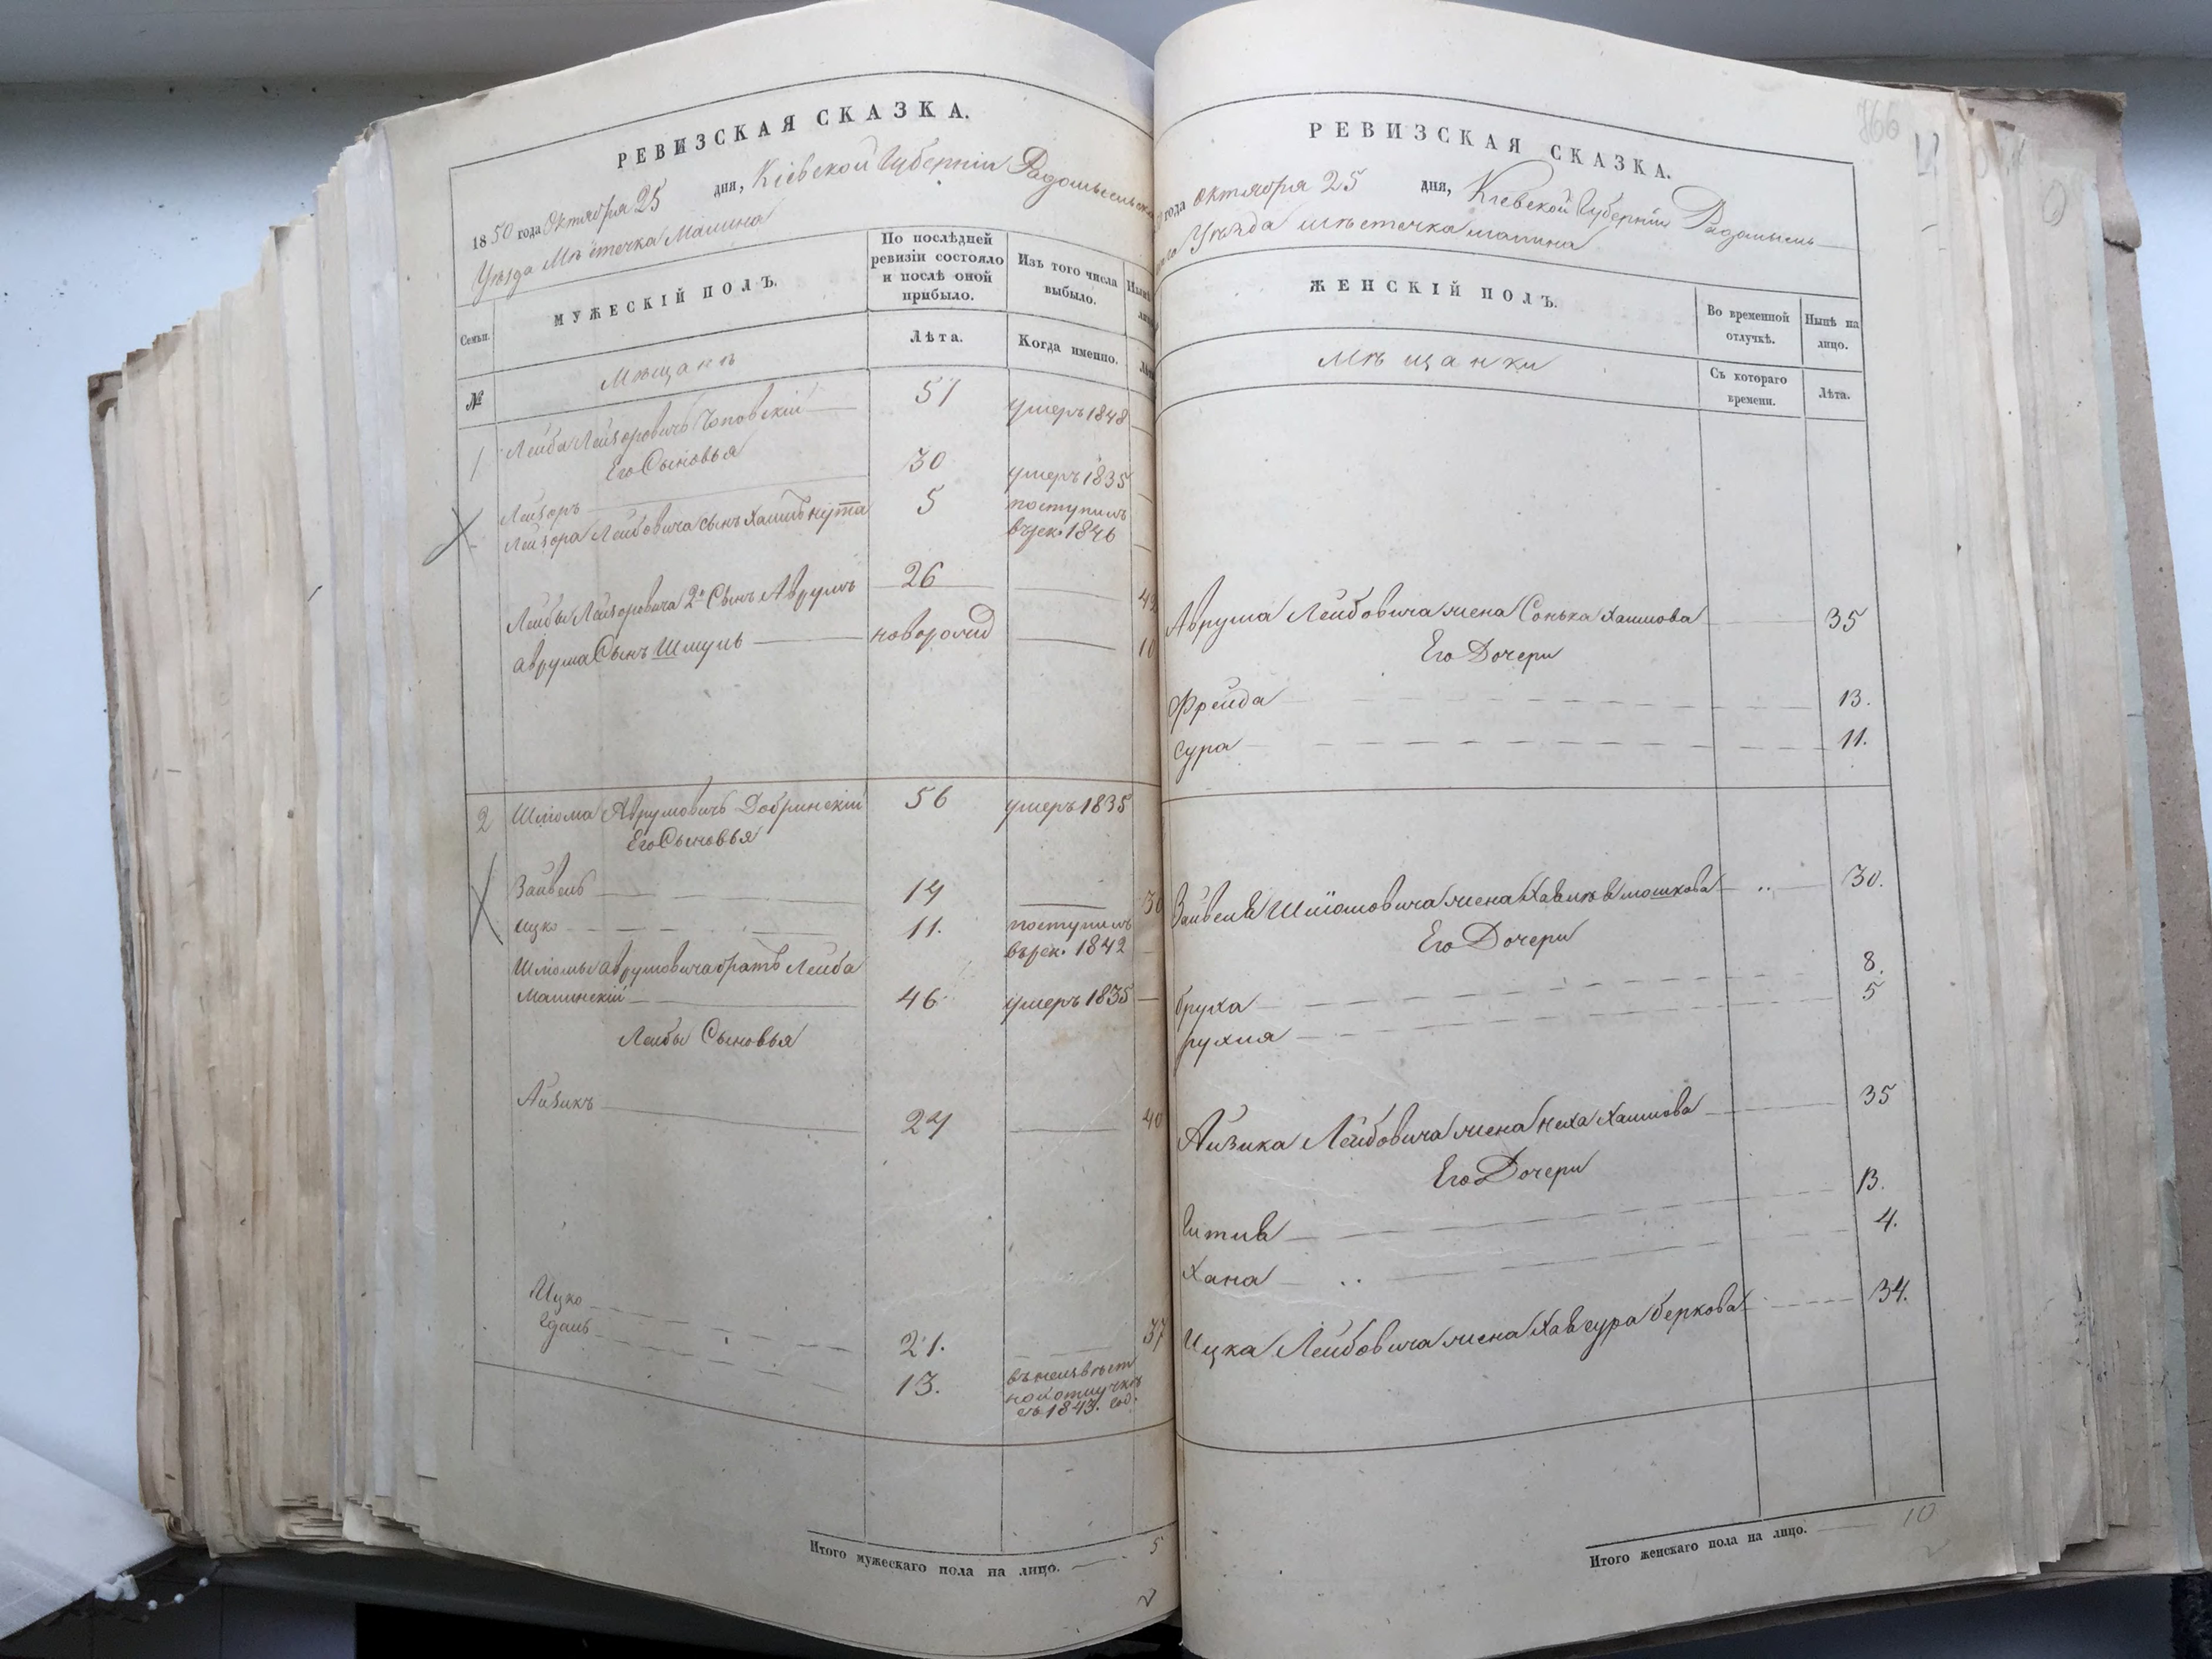 РЕВИЗСКАЯ СКАЗКА.
1850 года Октября 25 дня, Кіевской Губерніи Радомысльска
Уѣзда Мѣстечка Малина
Семьи.
МУЖЕСКІЙ ПОЛЪ.
По послѣдней ревизіи состояло и послѣ оной прибыло.
Изъ того числа выбыло.
№
Мѣщанъ
Лѣта.
Когда именно.
1 Лейба Лейзоровичъ 51 умеръ 1848
Его Сыновья
Лейзоръ 30 умеръ 1835
Лейзора Лейбовича сынъ Хаимъ Нута 5 поступилъ
в рек. 1846
Лейбы Лейзоровича 2й Сынъ Аврумъ 26
Аврума Сынъ Шмуль новорожд 10
2 Шлiома Аврумовичъ Добринскій 56 умеръ 1835
Его Сыновья
Зайвель 14
Ицко 11. поступилъ
въ рек. 1842
Шлiомы Аврумовича братъ Лейба
Малинскій 46 умеръ 1835
Лейбы Сыновья
Айзикъ 24 40
Ицко 21. 37
Едаль 13. въ неизвѣст
ной отлучкѣ
съ 1843. год.
Итого мужескаго пола на лицо. 5
2
166
РЕВИЗСКАЯ СКАЗКА.
года Октября 25 дня, Кіевской Губерніи Радомысль
Уѣзда мѣстечка малина
ЖЕНСКІЙ ПОЛЪ.
Во временной отлучкѣ.
Нынѣ на лицо.
Мѣщанки
Съ котораго времени.
Лѣта.
Аврума Лейбовича жена Сонька Хаимова 35
Его Дочери
Фрейда 13.
Сура 11.
Зайвеля Шліомовича жена Мошкова 30.
Его Дочери
Бруха 8.
рухля 5
Айзика Лейбовича жена Неха Хаимова 35
Его Дочери
13.
Хана 4.
Ицка Лейбовича жена Хавсура беркова 34.
Итого женскаго пола на лицо. 10